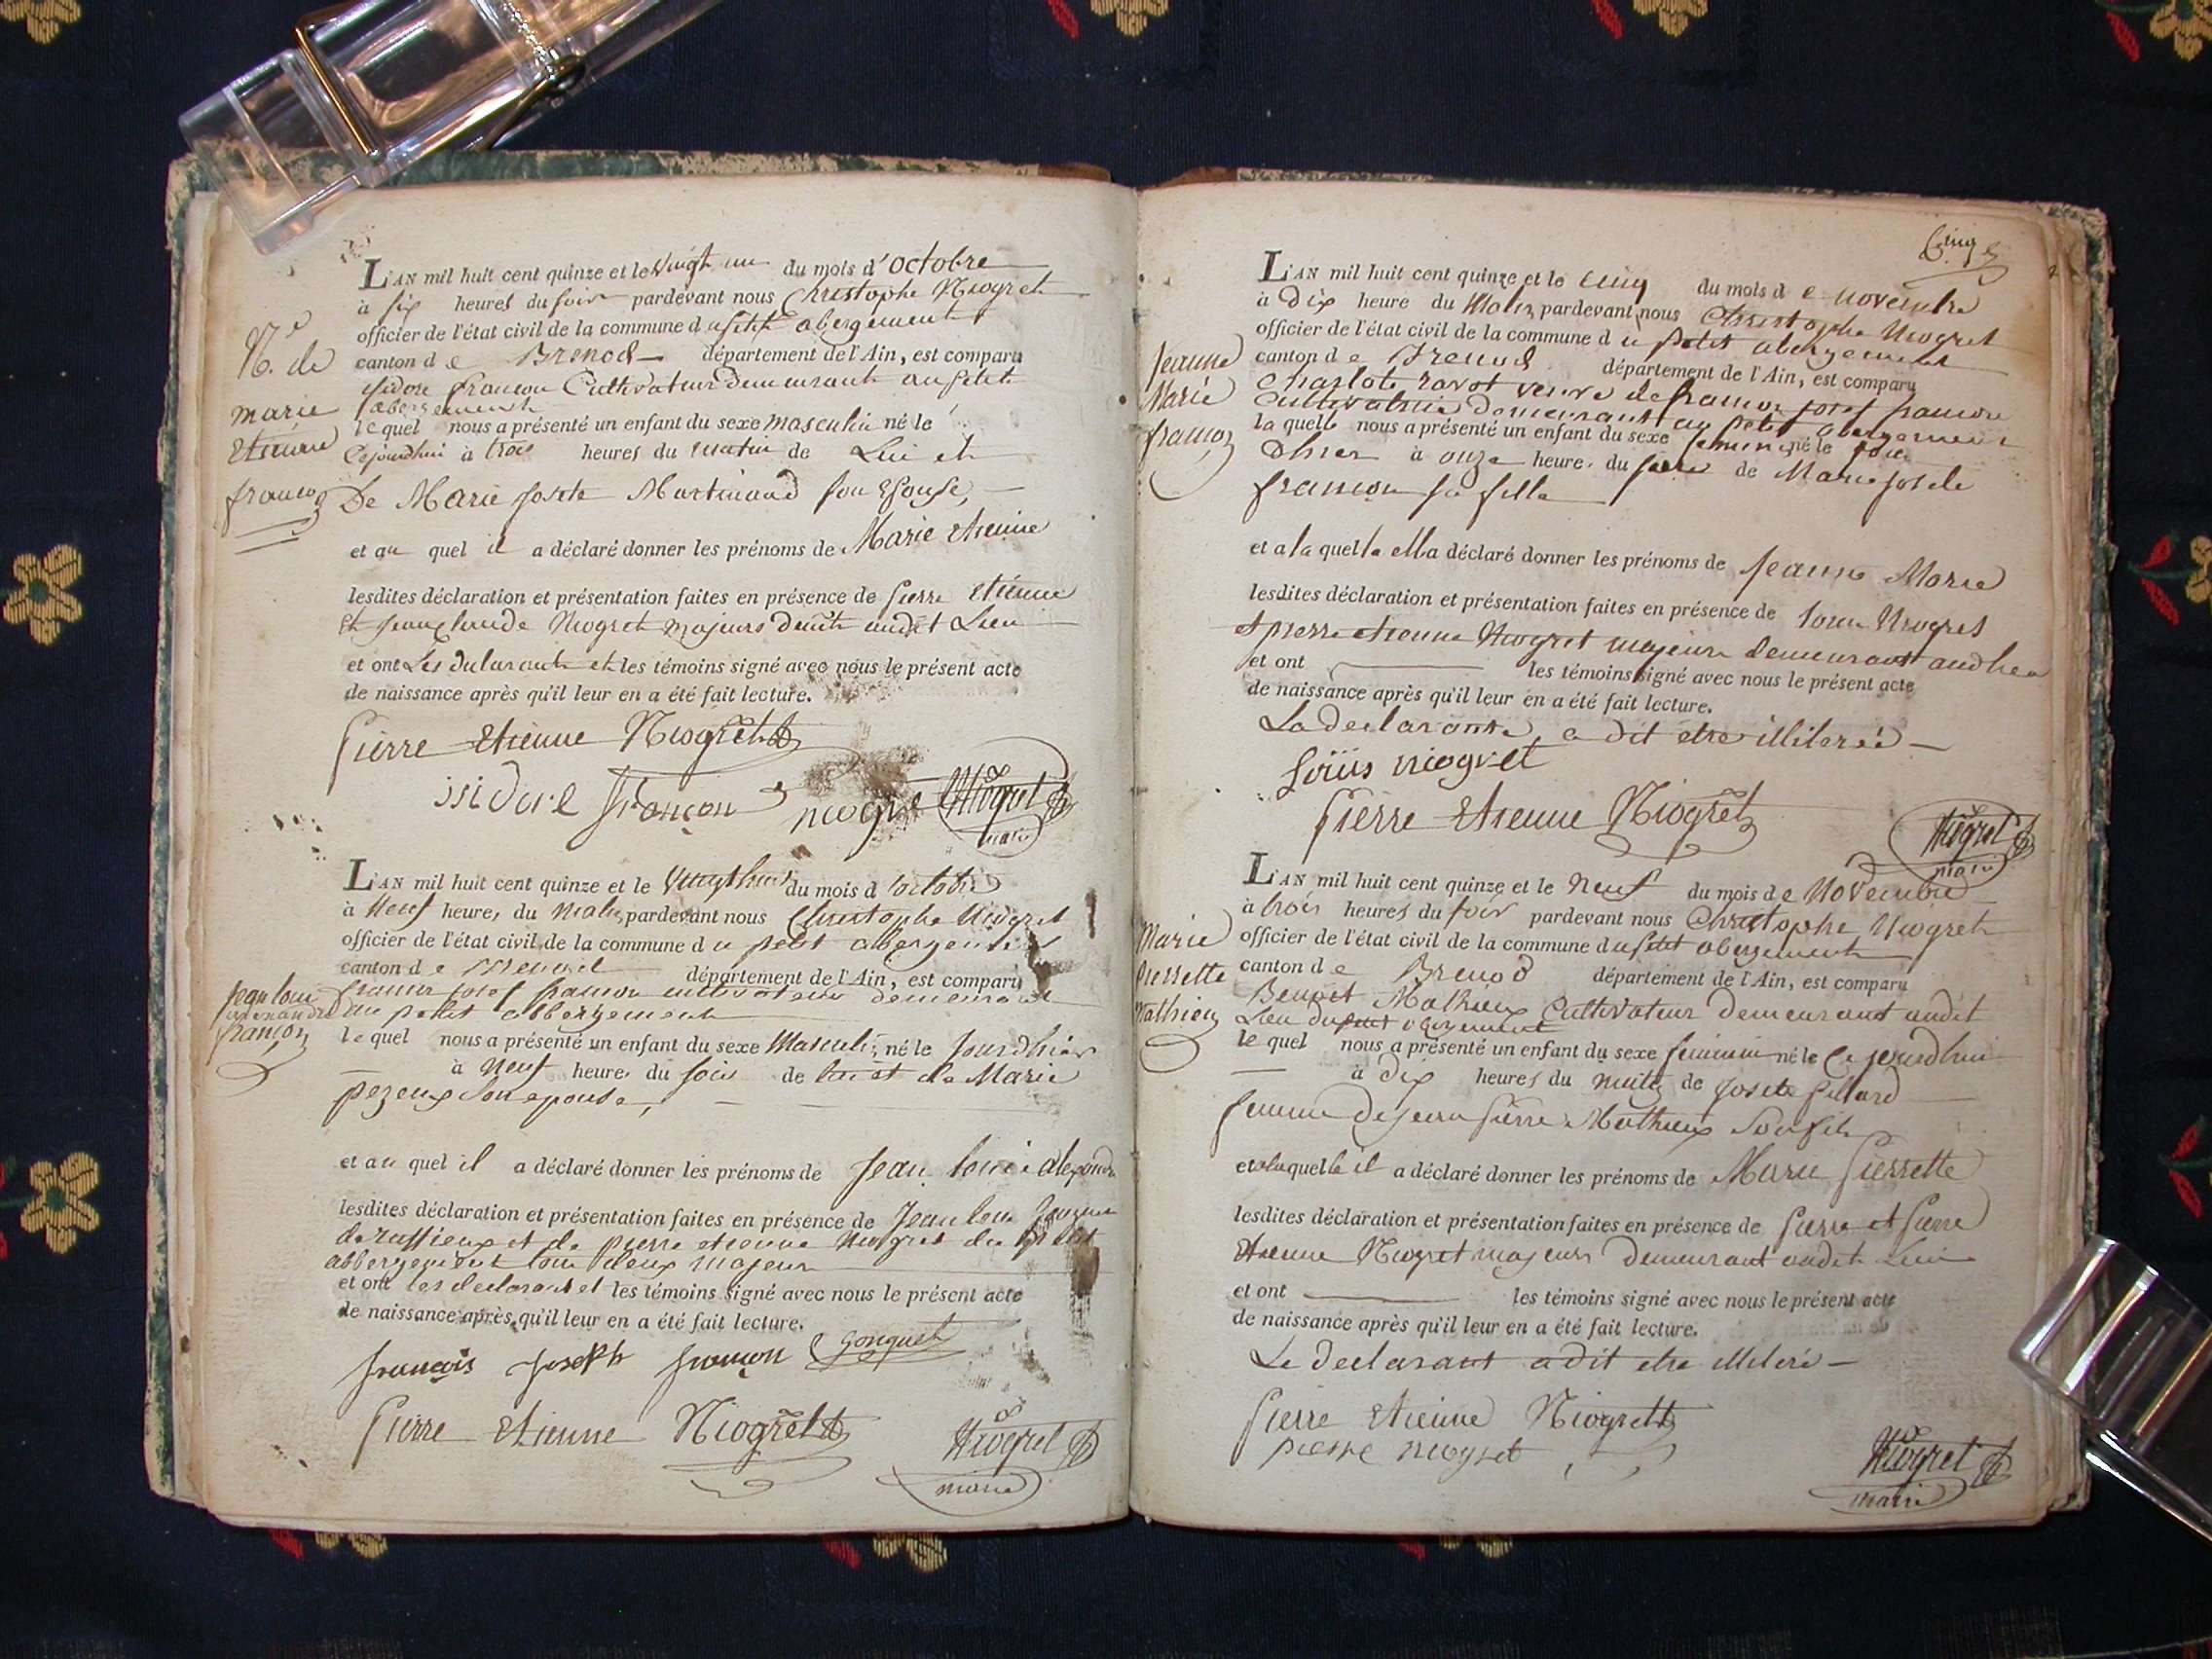 L'AN mil huit cent quinze et le vingt un du mois d'octobre
à six heures du soir pardevant nous Christophe Niogret
officier de l'état civil de la commune du petit abergement
canton de Brenod département de l'Ain, est comparu
isidore françon Cultivateur demeurant au petit
abergement
lequel nous a présenté un enfant du sexe masculin né le
Cejourdhui à trois heures du matin de Lui et
De Marie josete Martinand son Epouse,
et au quel il a déclaré donner les prénoms de Marie etienne
lesdites déclaration et présentation faites en présence de pierre etienne
et jean claude Niogret majeurs demt audit Lieu
et ont Les declarant et les témoins signé avec nous le présent acte
de naissance après qu'il leur en a été fait lecture.
pierre Etienne Niogret
issidore françon niogre Niogret
maire
N. de
marie
Etienne
françon
L'AN mil huit cent quinze et le vingt huit du mois d octobre
à Neuf heures du matin pardevant nous Christophe Niogret
officier de l'état civil de la commune du petit abergement
canton de Brenod département de l'Ain, est comparu
francois josef francon cultivateur demeurant
au petit abbergement
lequel nous a présenté un enfant du sexe Masculin né le jourdhier
à Neuf heures du soir de lui et de Marie
pezeux son epouse,
et au quel il a déclaré donner les prénoms de Jean louis alexandre
lesdites déclaration et présentation faites en présence de Jean louis
de ruffieux et de pierre etienne Niogret du petit
abbergement tous deux majeurs
et ont les declarant et les témoins signé avec nous le présent acte
de naissance après qu'il leur en a été fait lecture.
francois joseph françon gonguet
pierre Etienne Niogret Niogret
maire
jean louis
alexandre
françon
Cinq 5
L'AN mil huit cent quinze et le cinq du mois de novembre
à Dix heure du Matin pardevant nous Christophe Niogret
officier de l'état civil de la commune du petit abergement
canton de Brenod département de l'Ain, est comparu
Charlote ravot veuve de francois josef francon
Cultivatrice demeurant au petit abergement
laquelle nous a présenté un enfant du sexe feminin né le jour
Dhier à onze heure du soir de Marie josete
francon sa fille
et a la quelle ella déclaré donner les prénoms de jeanne Marie
lesdites déclaration et présentation faites en présence de louis Niogret
et pierre etienne Niogret majeurs demeurant aud lieu
et ont les témoins signé avec nous le présent acte
de naissance après qu'il leur en a été fait lecture.
La declarante a dit etre illiterée
Loüis niogret
pierre Etienne Niogret
Niogret
maire
jeanne
Marie
françon
L'AN mil huit cent quinze et le neuf du mois de Novembre
à trois heures du soir pardevant nous Christophe Niogret
officier de l'état civil de la commune du petit abergement
canton de Brenod département de l'Ain, est comparu
Benoit Mathieux Cultivateur demeurant audit
Lieu du petit abergement
lequel nous a présenté un enfant du sexe feminin né le Cejourdhui
à dix heures du de josete pillard
femme de jean pierre Mathieux Son fils
et a laquelle il a déclaré donner les prénoms de Marie pierrette
lesdites déclaration et présentation faites en présence de pierre et pierre
Etienne Niogret majeurs demeurant audit Lieu
et ont les témoins signé avec nous le présent acte
de naissance après qu'il leur en a été fait lecture.
Le declarant a dit etre illiteré
pierre Etienne Niogret
pierre niogret
Niogret
maire
Marie
pierrette
Mathieux